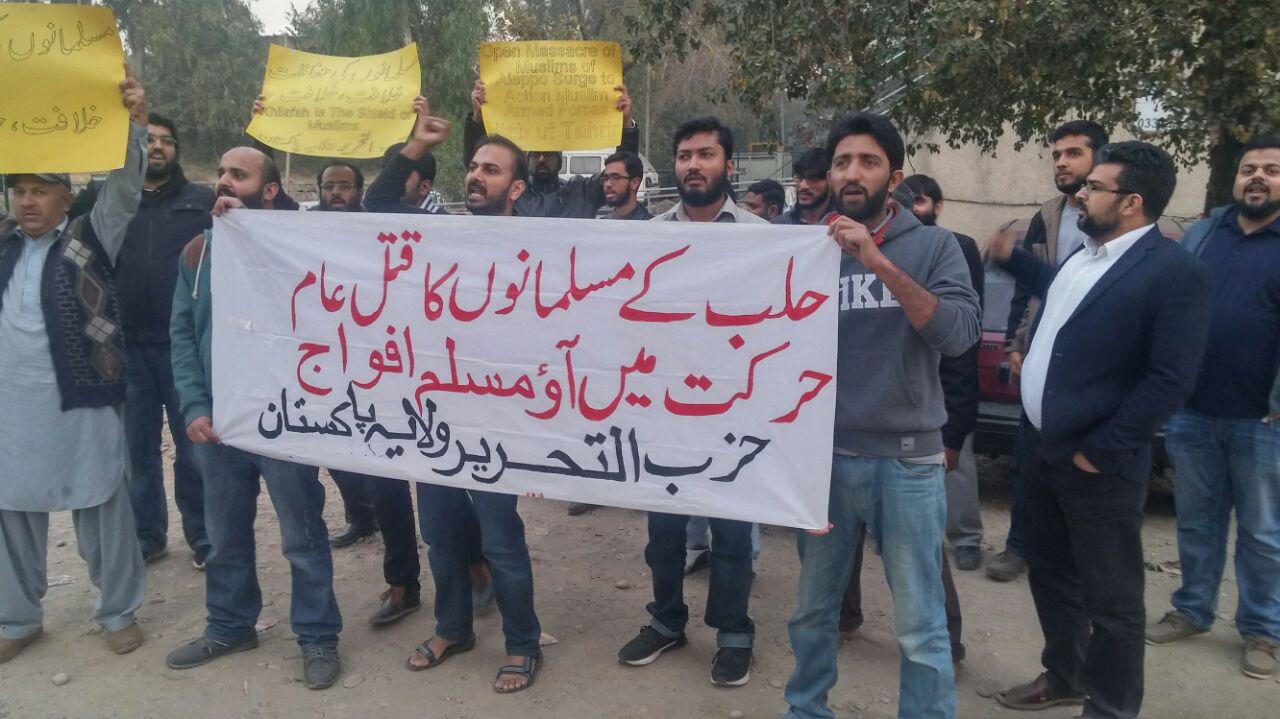 مسلمانوں
خلافت،
مسلمانوں کی حفاظت
خلافت، خلافت
Khilafah is The Shield of
Muslims
Open Massacre of
Muslims of
Aleppo Surge to
Action Muslim
Armed Forces
Hizb ut Tahrir
حلب کے مسلمانوں کا قتل عام
حرکت میں آؤ مسلم افواج
حزب التحریر ولایہ پاکستان